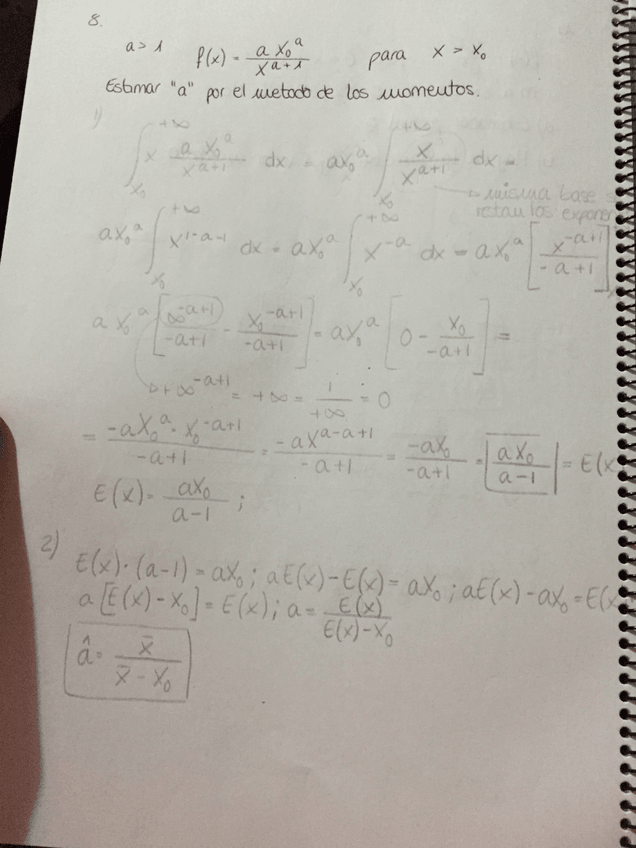 8.
a > 1 f(x) = a X₀ᵃ / X^(a+1) para x > x₀
Estimar "a" por el metodo de los momentos.
1)
∫_{X₀}^{+∞} x a X₀ᵃ / X^(a+1) dx = aX₀ᵃ ∫_{X₀}^{+∞} X / X^(a+1) dx =
misma base
restan los expone
aX₀ᵃ ∫_{X₀}^{+∞} X^(1-a-1) dx = aX₀ᵃ ∫_{X₀}^{+∞} X^(-a) dx = aX₀ᵃ [X^(-a+1) / (-a+1)]
a X₀ᵃ [∞^(-a+1) / (-a+1) - X₀^(-a+1) / (-a+1)] = aX₀ᵃ [0 - X₀ / (-a+1)] =
+∞^(-a+1) = +∞ = 1 / +∞ = 0
= -aX₀ᵃ · X₀^(-a+1) / (-a+1) = -aX^(a-a+1) / (-a+1) = -aX₀ / (-a+1) = aX₀ / (a-1) = E(x
E(x) = aX₀ / (a-1) ;
2)
E(x)·(a-1) = aX₀ ; aE(x) - E(x) = aX₀ ; aE(x) - aX₀ = E(x
a [E(x) - X₀] = E(x) ; a = E(x) / (E(x) - X₀)
â = x̄ / (x̄ - X₀)